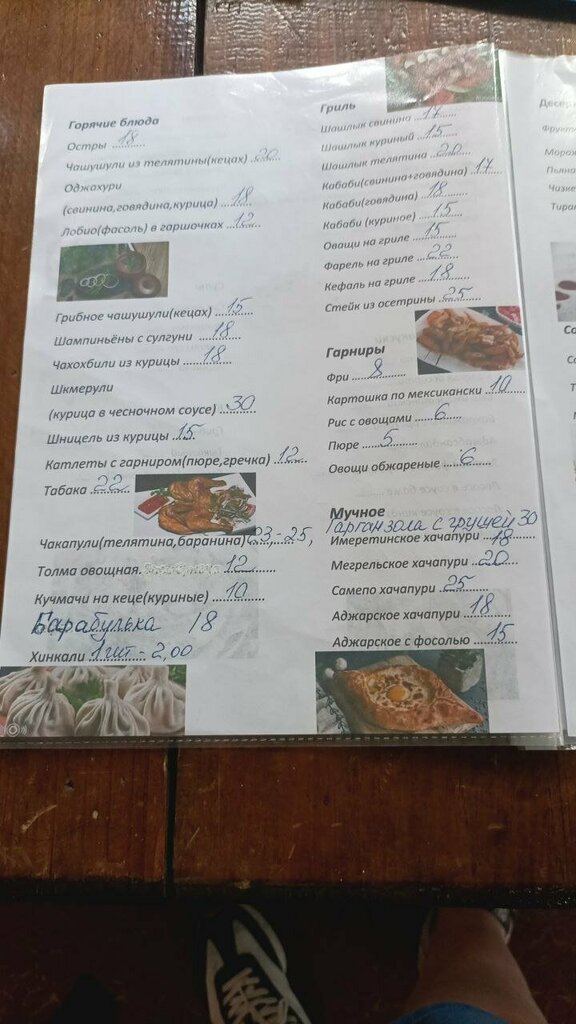 Горячие блюда
Остры ......18......
Чашушули из телятины(кецах) ..20...
Оджахури
(свинина,говядина,курица) ...18......
Лобио(фасоль) в гаршочках ...12...
Грибное чашушули(кецах) ...15...
Шампиньёны с сулгуни ...18...
Чахохбили из курицы ...18...
Шкмерули
(курица в чесночном соусе) ...30...
Шницель из курицы .15.
Катлеты с гарниром(пюре,гречка) ..12..
Табака ..22....
Чакапули(телятина,баранина)23,-25,
Толма овощная. 12
Кучмачи на кеце(куриные) ...10......
Барабулька 18
Хинкали 1 шт - 2,00
Гриль
Шашлык свинина ...17...
Шашлык куриный ..15...
Шашлык телятина ..20...
Кабаби(свинина+говядина) ..17
Кабаби(говядина) ...18...
Кабаби (куриное) ...15...
Оващи на гриле ...15...
Фарель на гриле ...22...
Кефаль на гриле ...18...
Стейк из осетрины ..25...
Гарниры
Фри ....8......
Картошка по мексикански ..10...
Рис с овощами .....6.....
Пюре ....5......
Овощи обжареные .....6....
Мучное
Гарганзола с грушей 30
Имеретинское хачапури ..18...
Мегрельское хачапури ..20...
Самепо хачапури ...25...
Аджарское хачапури ...18...
Аджарское с фосолью ....15...
Десер
Фрукт
Морож
Пьяна
Чизке
Тирам